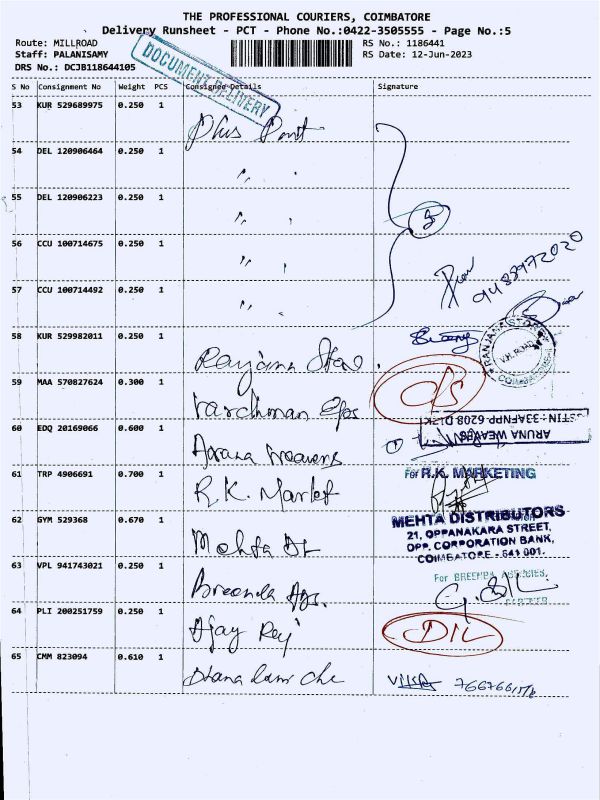 THE PROFESSIONAL COURIERS, COIMBATORE
Delivery Runsheet - PCT - Phone No.:0422-3505555 - Page No.:5
Route: MILLROAD
RS No.: 1186441
Staff: PALANISAMY
RS Date: 12-Jun-2023
DRS No.: DCJB118644105
DOCUMENT DELIVERY
S No Consignment No Weight PCS Consignee Details Signature
53 KUR 529689975 0.250 1
Plus Point
54 DEL 120906464 0.250 1
〃
55 DEL 120906223 0.250 1
〃
56 CCU 100714675 0.250 1
〃
57 CCU 100714492 0.250 1
〃
9488972020
58 KUR 529982011 0.250 1
Ranjana Store
RANJANA STORE
V.H. ROAD
COIMBATORE
59 MAA 570827624 0.300 1
Vardhman Egs
O/S
60 EDQ 20169066 0.600 1
Aruna Weavers
GSTIN: 33AFNPP 6208 D1ZK
ARUNA WEAVERS
61 TRP 4906691 0.700 1
R.K. Market
For R.K. MARKETING
62 GYM 529368 0.670 1
Mehta Dt
MEHTA DISTRIBUTORS
21, OPPANAKARA STREET,
OPP. CORPORATION BANK,
COIMBATORE - 641 001.
63 VPL 941743021 0.250 1
Breenda Ags.
For BREENDA AGENCIES,
64 PLI 200251759 0.250 1
Ajay Raj
D/L
65 CMM 823094 0.610 1
Dhana lami che